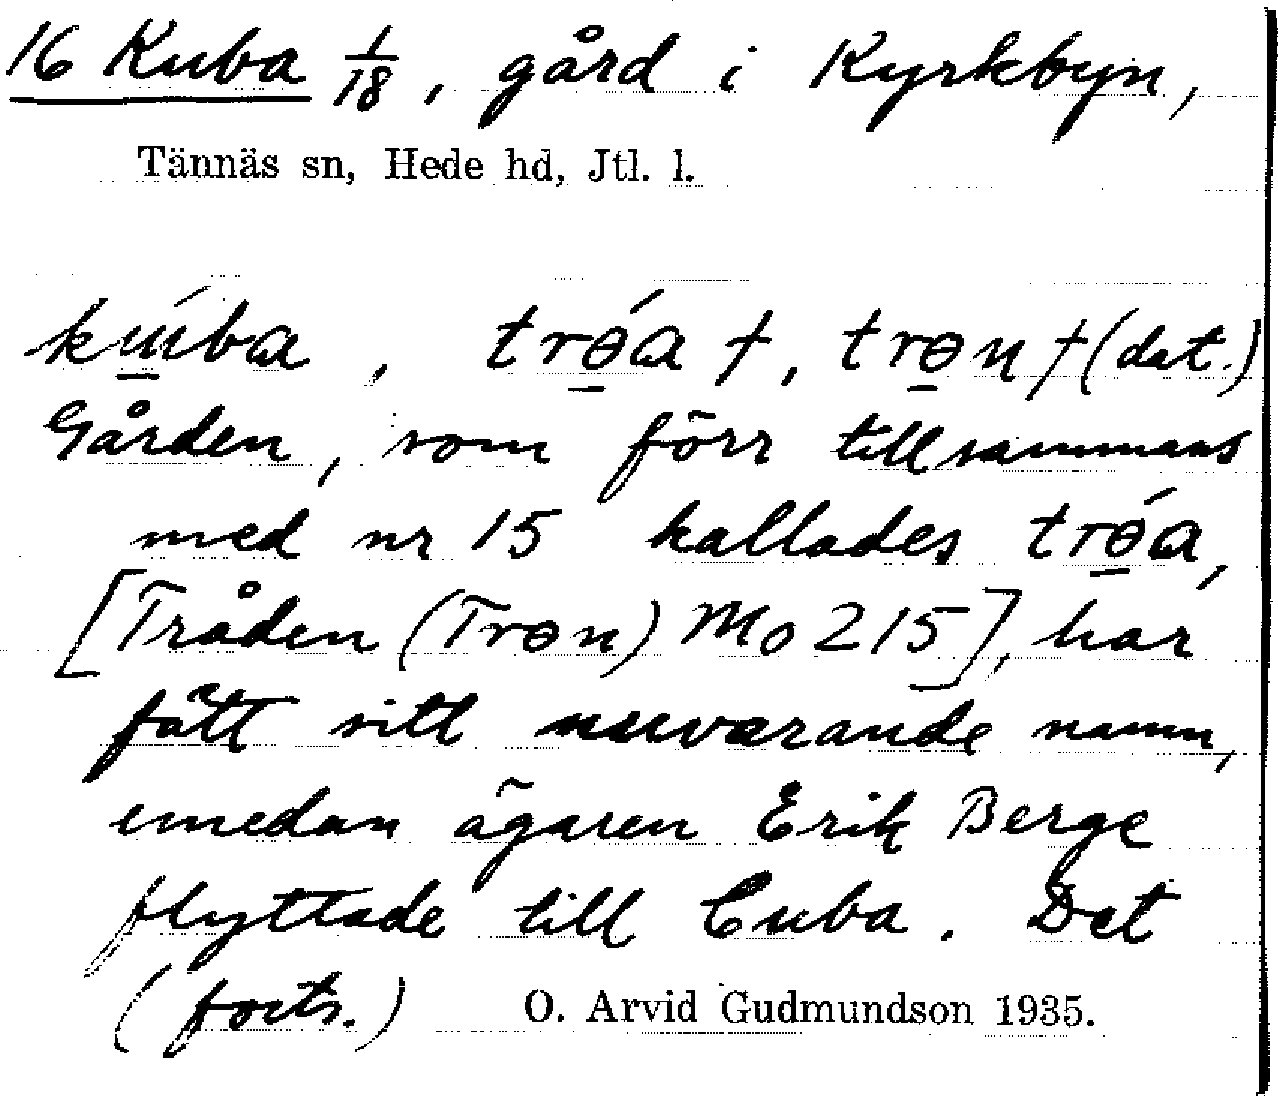 16 Kuba 1/18, gård i Kyrkbyn,
Tännäs sn, Hede hd, Jtl. l.
kúba, trǿa †, trɵn † (dat.)
Gården, som förr tillsammans
med nr 15 kallades trǿa,
[Tråden (Trɵn) Mo 215], har
fått sitt nuvarande namn,
emedan ägaren Erik Berge
flyttade till Cuba. Det
(forts.) O. Arvid Gudmundson 1935.